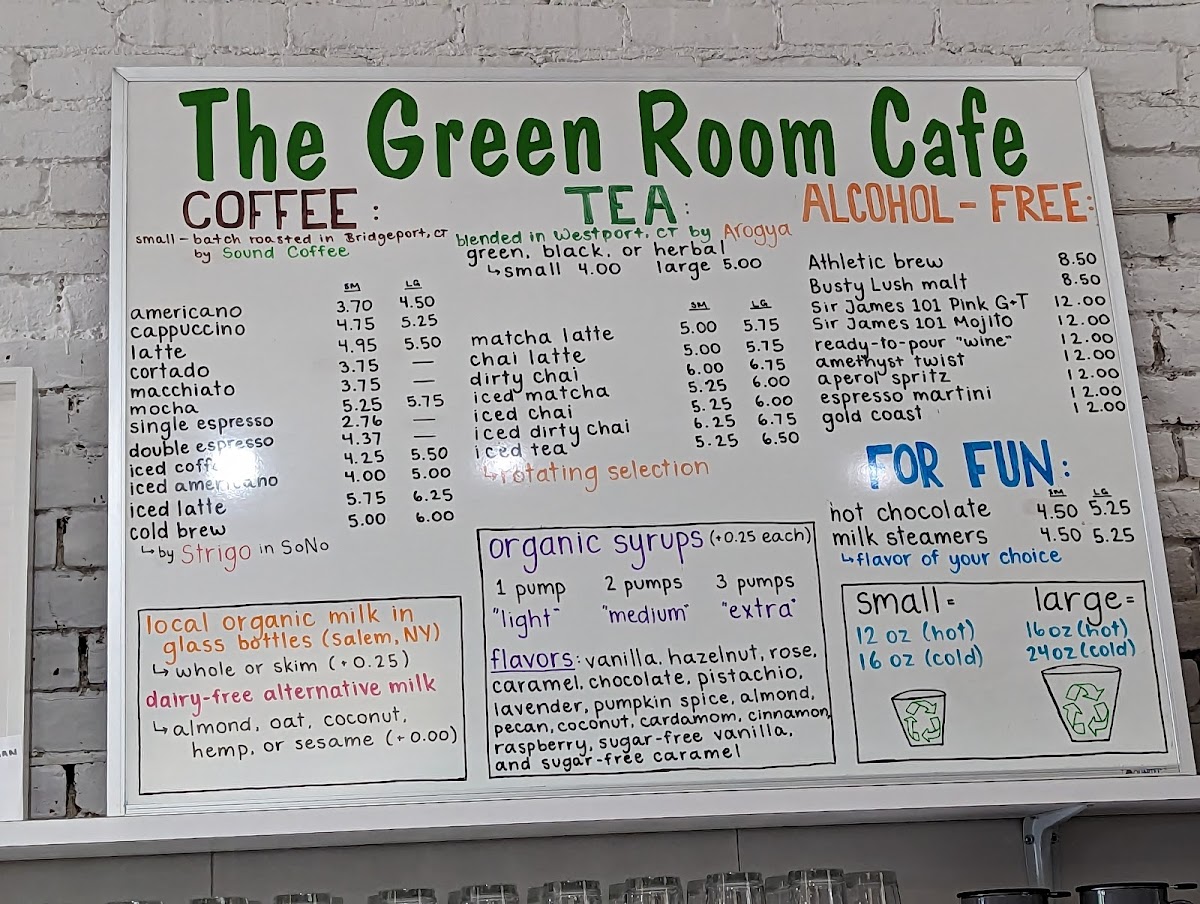 The Green Room Cafe
COFFEE:
small-batch roasted in Bridgeport, CT
by Sound Coffee
SM LG
americano 3.70 4.50
cappuccino 4.75 5.25
latte 4.95 5.50
cortado 3.75 —
macchiato 3.75 —
mocha 5.25 5.75
single espresso 2.76 —
double espresso 4.37 —
iced coff 4.25 5.50
iced americano 4.00 5.00
iced latte 5.75 6.25
cold brew 5.00 6.00
↳by Strigo in SoNo
local organic milk in
glass bottles (Salem, NY)
↳whole or skim (+0.25)
dairy-free alternative milk
↳almond, oat, coconut,
hemp, or sesame (+0.00)
TEA:
blended in Westport, CT by Arogya
green, black, or herbal
↳small 4.00 large 5.00
SM LG
matcha latte 5.00 5.75
chai latte 5.00 5.75
dirty chai 6.00 6.75
iced matcha 5.25 6.00
iced chai 5.25 6.00
iced dirty chai 6.25 6.75
iced tea 5.25 6.50
↳rotating selection
organic syrups (+0.25 each)
1 pump 2 pumps 3 pumps
"light" "medium" "extra"
flavors: vanilla, hazelnut, rose,
caramel, chocolate, pistachio,
lavender, pumpkin spice, almond,
pecan, coconut, cardamom, cinnamon,
raspberry, sugar-free vanilla,
and sugar-free caramel
ALCOHOL-FREE:
Athletic brew 8.50
Busty Lush malt 8.50
Sir James 101 Pink G+T 12.00
Sir James 101 Mojito 12.00
ready-to-pour "wine" 12.00
amethyst twist 12.00
aperol spritz 12.00
espresso martini 12.00
gold coast 12.00
FOR FUN:
SM LG
hot chocolate 4.50 5.25
milk steamers 4.50 5.25
↳flavor of your choice
small= large=
12 oz (hot) 16oz (hot)
16 oz (cold) 24oz (cold)